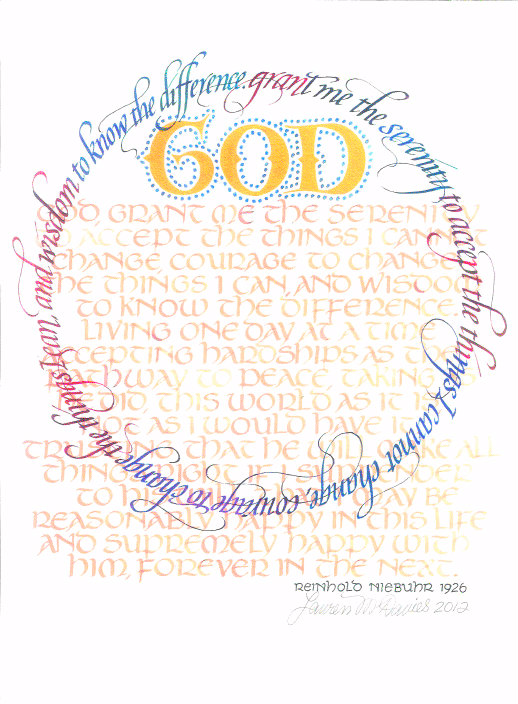 GOD
grant me the serenity to accept the things I cannot change, courage to change the things I can, and wisdom to know the difference.
GOD, GRANT ME THE SERENITY
TO ACCEPT THE THINGS I CANNOT
CHANGE COURAGE TO CHANGE
THE THINGS I CAN, AND WISDOM
TO KNOW THE DIFFERENCE
LIVING ONE DAY AT A TIME
ACCEPTING HARDSHIPS AS THE
PATHWAY TO PEACE TAKING AS
HE DID, THIS WORLD AS IT IS
NOT AS I WOULD HAVE IT
TRUSTING THAT HE WILL MAKE ALL
THINGS RIGHT IF I SURRENDER
TO HIS MAY BE
REASONABLY HAPPY IN THIS LIFE
AND SUPREMELY HAPPY WITH
HIM, FOREVER IN THE NEXT.
REINHOLD NIEBUHR 1926
2012